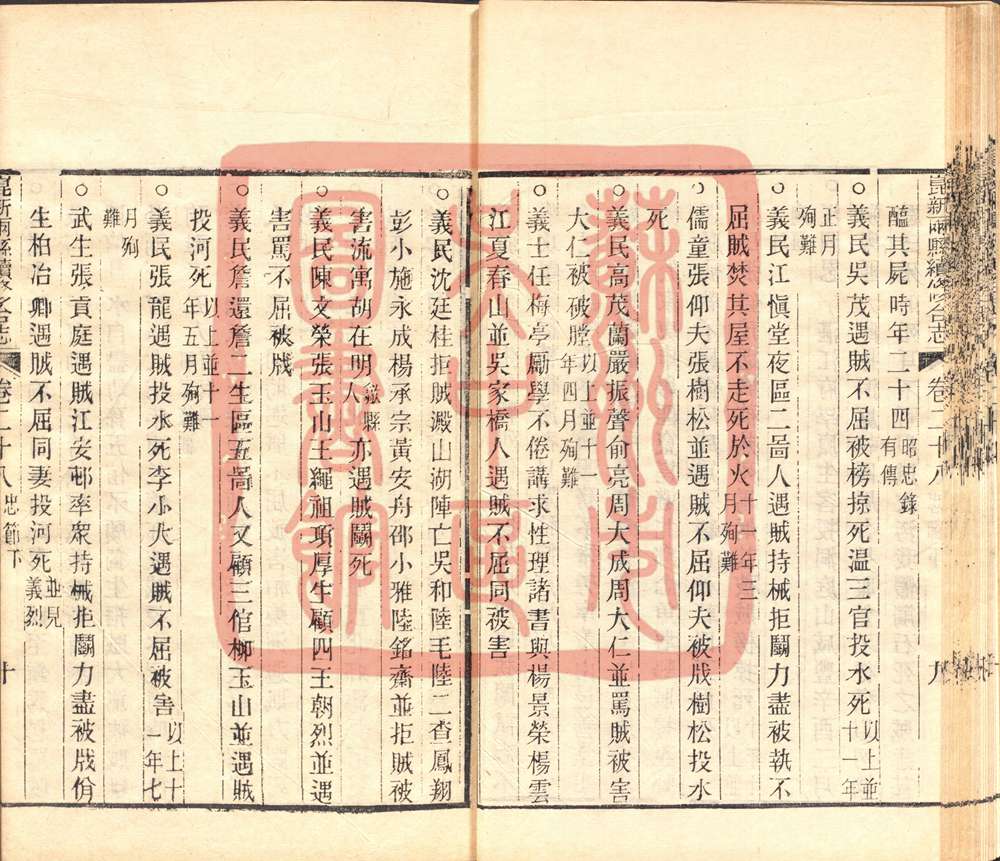 崑新兩縣續修合志 卷二十八 九
醢其屍時年二十四昭忠錄有傳
○義民吳茂遇賊不屈被榜掠死温三官投水死以上並十一年
正月殉難
○義民江愼堂夜區二啚人遇賊持械拒鬭力盡被執不
屈賊焚其屋不走死於火十一年三月殉難
○儒童張仰夫張樹松並遇賊不屈仰夫被戕樹松投水
死
○義民高茂蘭嚴振聲俞亮周大成周大仁並罵賊被害
大仁被破膛以上並十一年四月殉難
○義士任梅亭勵學不倦講求性理諸書與楊景榮楊雲
江夏春山並吳家橋人遇賊不屈同被害
○義民沈廷桂拒賊澱山湖陣亡吳和陸毛陸二査鳳翔
彭小施永成楊承宗黃安舟邵小雅陸銘齋並拒賊被
害流寓胡在明歙縣人亦遇賊鬭死
○義民陳文榮張玉山王繩祖項厚生顧四王朝烈並遇
害罵不屈被戕
○義民詹還詹二生區五啚人又顧三倌柳玉山並遇賊
投河死以上並十一年五月殉難
○義民張龍遇賊投水死李小犬遇賊不屈被害以上十一年七
月殉難
○武生張貢庭遇賊江安邨率衆持械拒鬭力盡被戕佾
生柏冶卿遇賊不屈同妻投河死並見義烈
崑新兩縣續修合志 卷二十八 忠節下 十